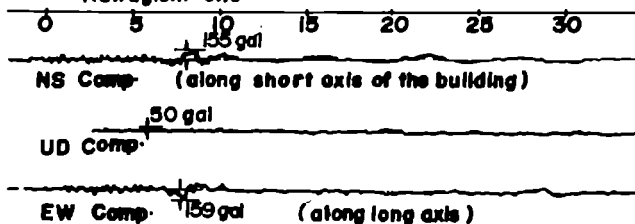 0 5 10 15 20 25 30
155 gal
NS Comp. (along short axis of the building)
50 gal
UD Comp.
EW Comp. 159 gal (along long axis)